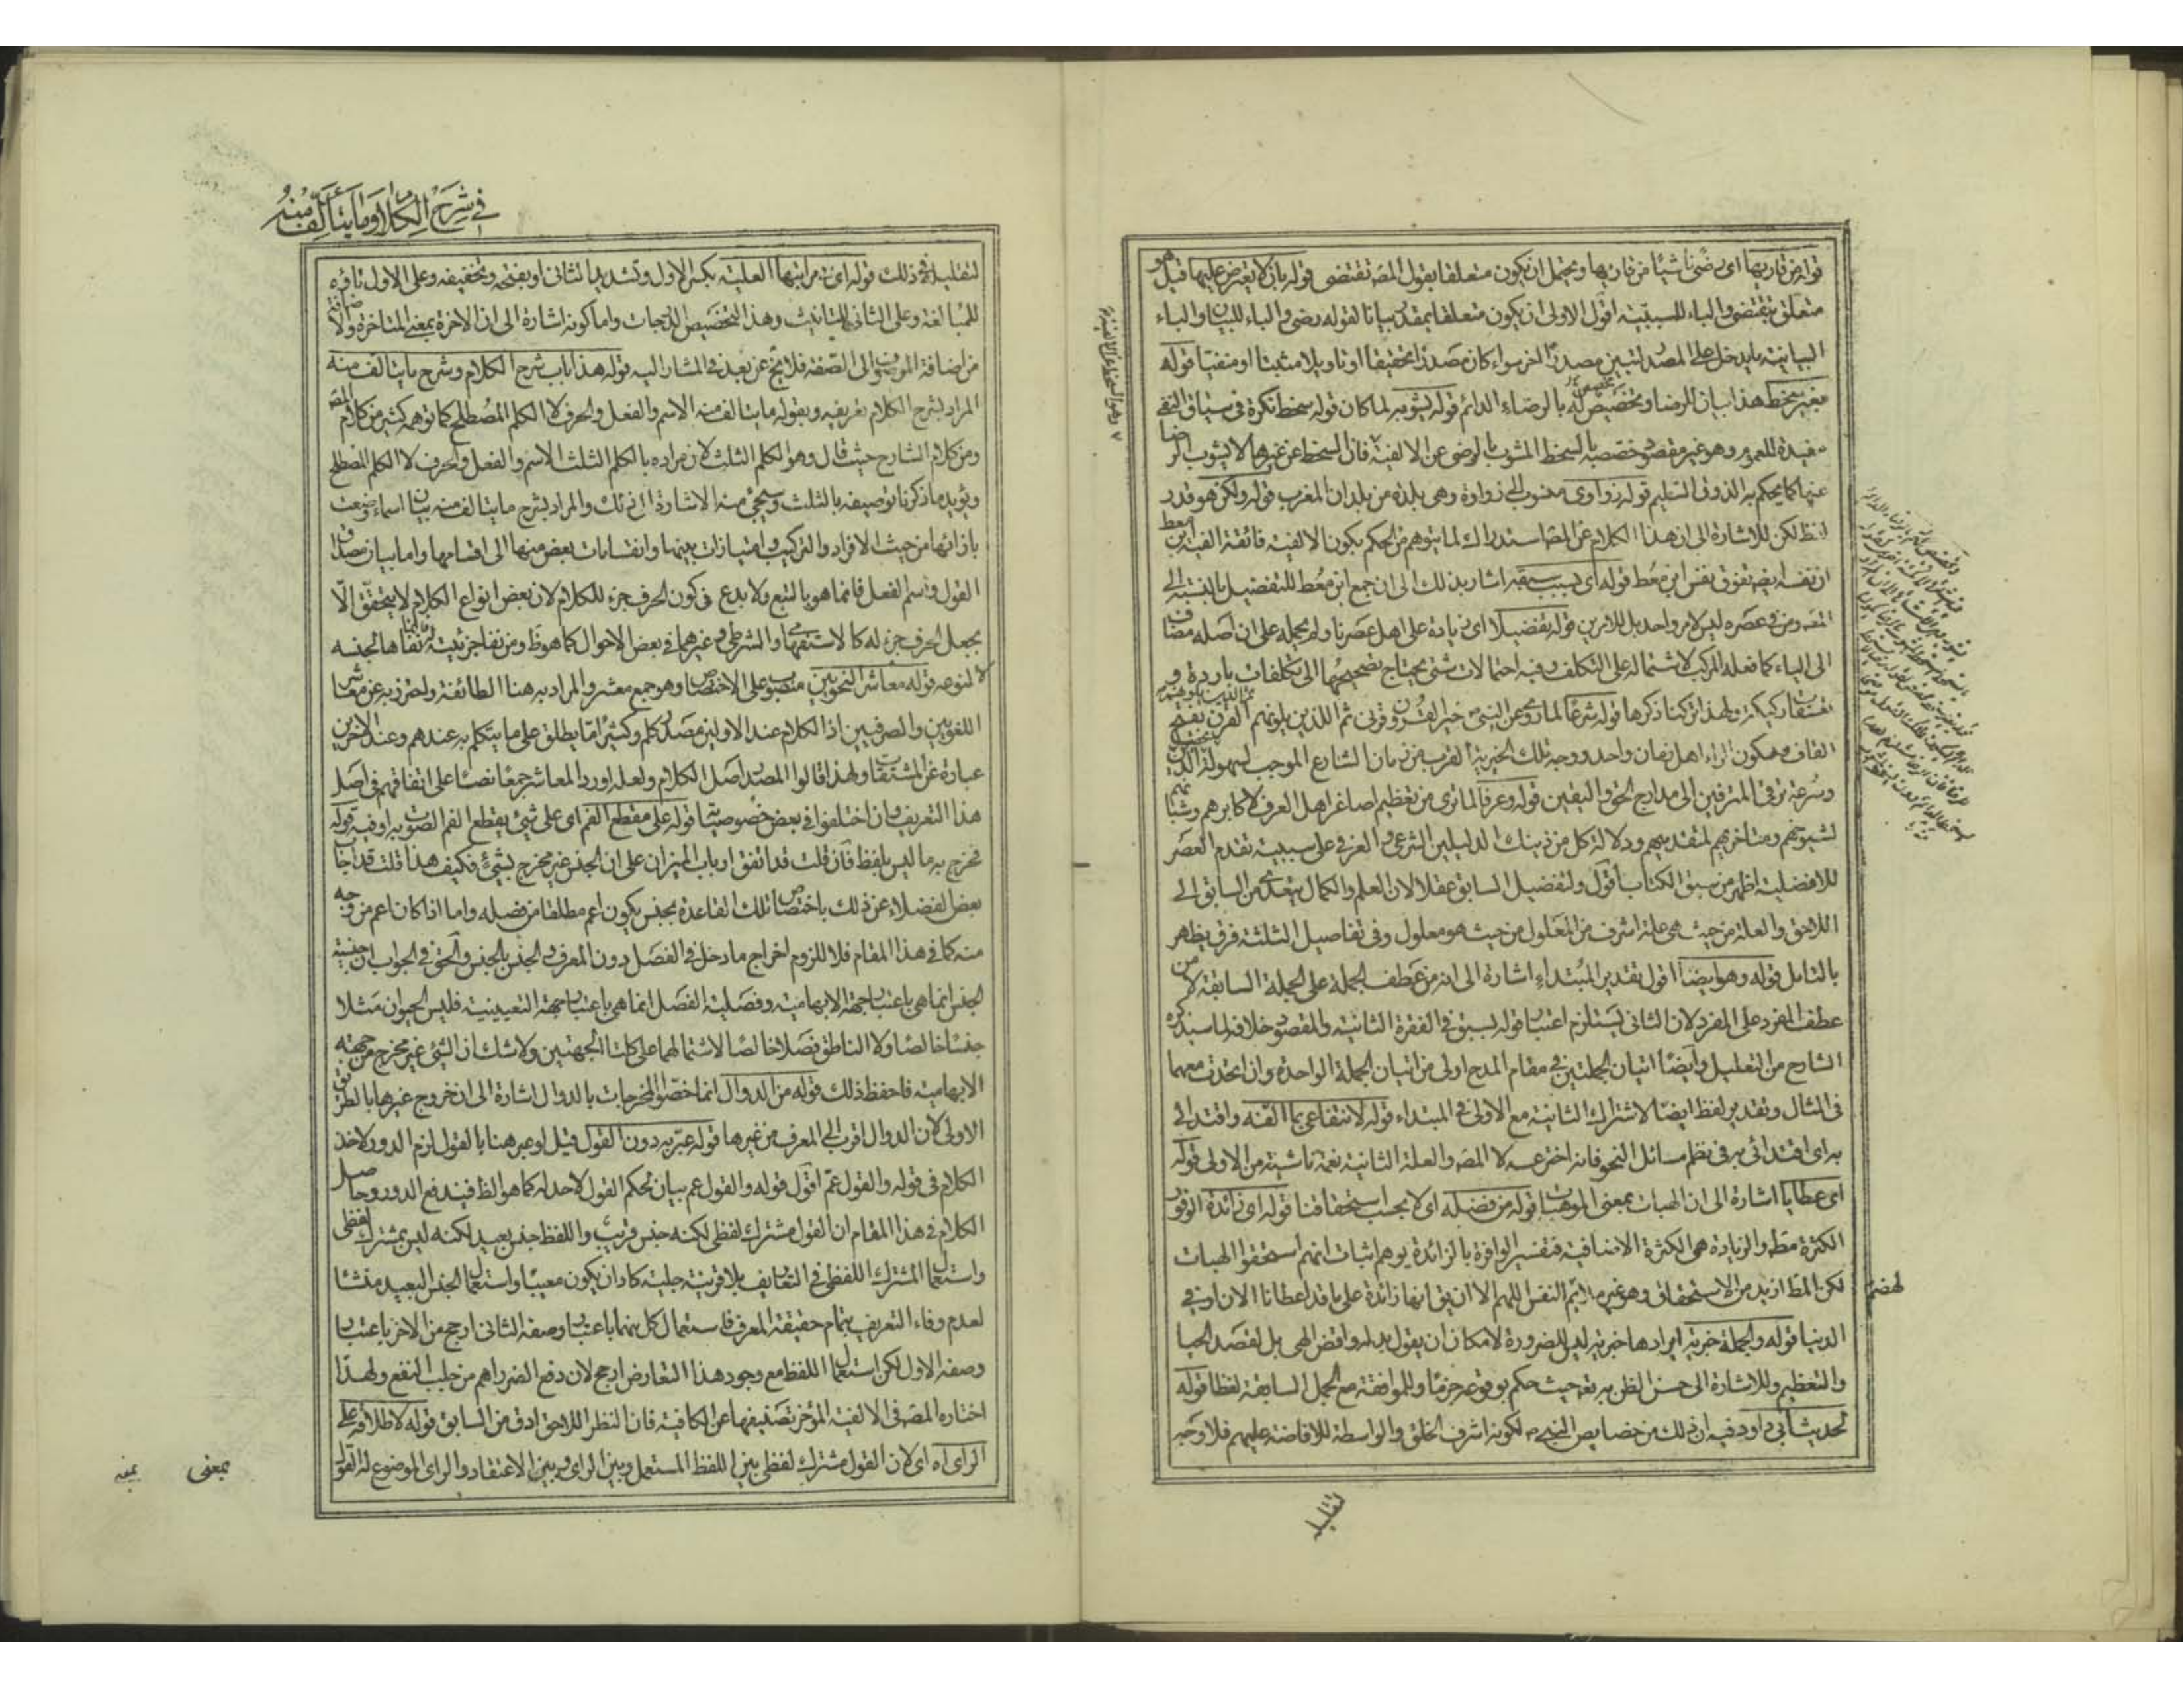 قوله من قاريها اى رضى ناشيًا من قاريها ويحتمل ان يكون متعلقا بقول المص تقتضى قوله بان لا يعترض عليها قيل هو
متعلق بتقتضى والباء للسببيّة اقول الاولى ان يكون متعلقا بمقدر بيانا لقوله رضى والباء للبيان والباء
البيانيّة ما يدخل على المصدر لتبيين مصدر اخر سواء كان مصدرا تحقيقا او تاويلا مثبتا او منفيّا قوله
بغير سخط هذا بيان للرضا وتخصيص له بالرضاء الدائم قوله يشوبه لما كان قوله سخط نكرة فى سياق النفى
مفيدة للعموم وهو غير مقصود خصّصه بالسخط المشوب بالرضى عن الالفيّة فان السخط عن غيرها لا يشوب الرضا
عنها كما يحكم به الذوق السّليم قوله زواوى منسوب الى زواوة وهى بلدة من بلدان المغرب قوله ولكن هو قدر
لفظ لكن للاشارة الى ان هذا الكلام عن المص استدراك لما يتوهم من الحكم بكون الالفيّة فائقة الفية ابن معط
ان نفسه ايضا تفوق نفس ابن معط قوله اى بسبب سبقه اشار بذلك الى ان جمع ابن معط للتفضيل بالنسبة الى
المص ومن فى عصره ليس لامر واحد بل لامرين قوله تفضيلا اى زيادة على اهل عصرنا ولم يحمله على ان اصله مضاف
الى الياء كما فعله المركب لاشتماله على التكلف وفيه احتمالات شتى يحتاج تصحيحها الى تكلفات باردة و
ركيكة ولهذا تركنا ذكرها قوله شرعا لما روى عن النبى خير القرون قرنى ثم الذين يلونهم القرن بفتح
القاف وسكون الراء اهل زمان واحد ووجه تلك الخيريّة القرب من زمان الشارع الموجب لسهولة
وسرعة ترقى المترقين الى مدارج الحق واليقين قوله وعرفا لما ترى من تعظيم اصاغر اهل العرف لاكابرهم وشبانهم
لشيوخهم ومتاخريهم لمتقدميهم ودلالة كل من ذينك الدليلين الشرعى والعرفى على سببية تقدم العصر
للافضلية اظهر من سبق الكتاب اقول ولتفضيل السابق عقلا لان العلم والكمال يتعدى من السابق الى
اللاحق والعلة من حيث هى علة اشرف من المعلول من حيث هو معلول وفى تفاصيل الثلثة فرق يظهر
بالتامل قوله وهو ايضا اقول تقدير المبتداء اشارة الى انه من عطف الجملة على الجملة السابقة لا من
عطف المفرد على المفرد لان الثانى يستلزم اعتبار قوله بسبق فى الفقرة الثانية والمقصود خلافه لما سيذكره
الشارح من التعليل وايضا اتيان الجملتين فى مقام المدح اولى من اتيان الجملة الواحدة وان اتحدت معهما
فى المثال وتقدير لفظ ايضا لاشتراك الثانية مع الاولى فى المبتداء قوله لانتفاعى بما الفه واقتدائى
به اى اقتدائى به فى نظم مسائل النحو فانه اخترعه لا المص والعلة الثانية نعمة ناشية من الاولى قوله
اى عطايا اشارة الى ان الهبات بمعنى الموهبات قوله من فضله اى لا بحسب استحقاقنا قوله اى زائدة الوفور
الكثرة مط والزيادة هى الكثرة الاضافية فتفسير الوافرة بالزائدة يوهم اثبات انهم استحقوا الهبات
لكن المط ازيد من الاستحقاق وهو غير ملايم لهضم النفس اللهم الا ان يق انها زائدة على ما قد اعطانا الان او فى
الدنيا قوله والجملة خبرية ايرادها خبرية ليس للضرورة لامكان ان يقول بدله واقض الهى بل لقصد الحيا
والتعظيم وللاشارة الى حسن الظن به تعه حيث حكم بوقوعه جزما وللموافقة مع الجمل السابقة لفظا قوله
لحديث ابى داود فيه ان ذلك من خصايص النبى لكونه اشرف الخلق والواسطة للافاضة عليهم فلا وجه
لتقليله
فى شرح الكلام وما يتألف منه
لتقليله فى ذلك قوله اى من مراتبها العلية بكسر الاول وتشديد الثانى او بفتحه وتخفيفه وعلى الاول تاؤه
للمبالغة وعلى الثانى للتانيث وهذا التخصيص الدرجات واما كونه اشارة الى ان الاخرة بمعنى المتاخرة والاضافة
من اضافة الموصوف الى الصّفة فلا يخ عن بعد فى المشار اليه قوله هذا باب شرح الكلام وشرح ما يتالف منه
المراد بشرح الكلام تعريفه وبقوله ما يتالف منه الاسم والفعل والحرف لا الكلم المصطلح كما توهمه كثير من كلام المص
ومن كلام الشارح حيث قال وهو الكلم الثلث لان مراده بالكلم الثلث الاسم والفعل والحرف لا الكلم المصطلح
ويؤيد ما ذكرنا توصيفه بالثلث وسيجئ منه الاشارة الى ذلك والمراد بشرح ما يتالف منه بيان اسماء وضعت
بازائها من حيث الافراد والتركيب وامتيازات بينها وانقسامات بعض منها الى اقسامها واما بيان مصداق
القول واسم الفعل فانما هو بالتبع ولا بدع فى كون الحرف جزء للكلام لان بعض انواع الكلام لا يتحقق الّا
بجعل الحرف جزء له كالاستفهامى والشرطى وغيرهما فى بعض الاحوال كما هو ظ ومن نفا جزئيّته انما نفاها لجنسه
لا لنوعه قوله معاشر النحويين منصوب على الاختصاص وهو جمع معشر والمراد به هنا الطائفة ولحترز به عن معاشر
اللغويين والصرفيين اذ الكلام عند الاولين مصدر كلم وكثيرا ما يطلق على ما يتكلم به عندهم وعند الاخرين
عبارة عن المشتقات ولهذا قالوا المصدر اصل الكلام ولعله اورد المعاشر جمعا نصا على اتفاقهم فى اصل
هذا التعريف وان اختلفوا فى بعض خصوصيته قوله على مقطع الفم اى على شئ يقطع الفم الصوت به او فيه قوله
فخرج به ما ليس بلفظ فان قلت قد اتفق ارباب الميزان على ان الجنس غير مخرج بشئ فكيف هذا قلت قد اجاب
بعض الفضلاء عن ذلك باختصاص تلك القاعدة بجنس يكون اعم مطلقا من فصله واما اذا كان اعم من وجه
منه كما فى هذا المقام فلا للزوم اخراج ما دخل فى الفصل دون المعرف بالجنس والحق فى الجواب ان جنسية
الجنس انما هى باعتبار جهة الابهامية وفصلية الفصل انما هى باعتبار جهة التعيينية فليس الحيوان مثلا
جنسا خالصا ولا الناطق فصلا خالصا لاشتمالهما على كلتا الجهتين ولا شك ان الشئ غير مخرج من جهة
الابهامية فاحفظ ذلك قوله من الدوال انما خصّوا المخرجات بالدوال اشارة الى ان خروج غيرها بالطريق
الاولى لان الدوال اقرب الى المعرف من غيرها قوله عبّر به دون القول قيل لو عبر هنا بالقول لزم الدور لاخذ
الكلام فى قوله والقول عمّ اقول قوله والقول عم بيان لحكم القول لا حد له كما هو الظ فيندفع الدور وحاصل
الكلام فى هذا المقام ان القول مشترك لفظى لكنه جنس قريب واللفظ جنس بعيد لكنه ليس بمشترك لفظى
واستعمال المشترك اللفظى فى التعاريف بلا قرينة جلية كاد ان يكون معيبا واستعمال الجنس البعيد منشا
لعدم وفاء التعريف بتمام حقيقة المعرف فاستعمال كل منهما باعتبار وصفه الثانى ارجح من الاخر باعتبار
وصفه الاول لكن استعمال اللفظ مع وجود هذا التعارض ارجح لان دفع الضرر اهم من جلب النفع ولهذا
اختاره المص فى الالفية المؤخر تصنيفها عن الكافية فان النظر اللاحق ادق من السابق قوله لاطلاقه على
الراى اه اى لان القول مشترك لفظى بين اللفظ المستعمل وبين الراى وبين الاعتقاد والراى الموضوع له القول
بمعنى بمعنى